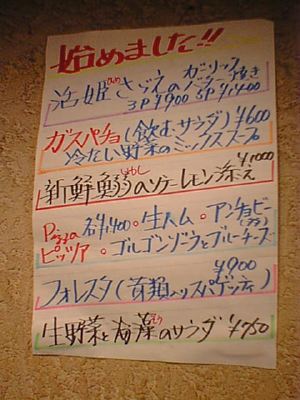 始めました!!
活姫さざえのガーリックバター焼き
3P ¥900 5P ¥1,400
ガスパチョ(飲むサラダ) ¥600
冷たい野菜のミックススープ
¥1,000
新鮮鰯のソテーレモン添え
Pizza 各¥1,400・生ハム・アンチョビー
ピッツァ・ゴルゴンゾーラとブルーチーズ
¥900
フォレスタ(茸類入りスパゲッティ)
生野菜と海藻のサラダ ¥750